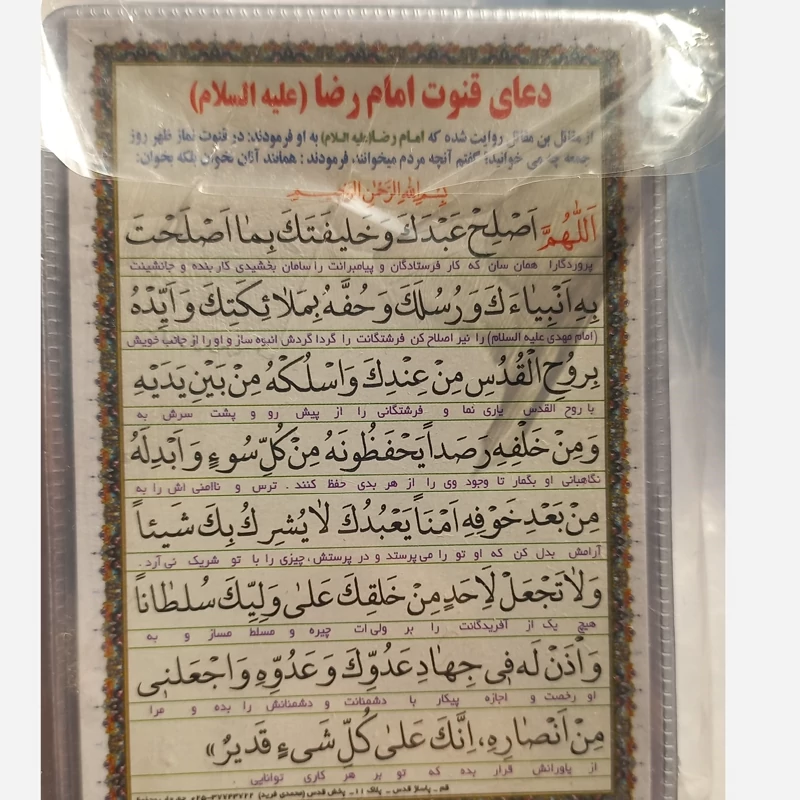 دعای قنوت امام رضا (علیه السلام)
از مقاتل بن مقاتل روایت شده که امام رضا(علیه السلام) به او فرمودند: در قنوت نماز ظهر روز
جمعه چه می خوانید؟ گفتم آنچه مردم میخوانند، فرمودند: همانند آنان نخوان بلکه بخوان:
بِسْمِ اللهِ الرَّحْمٰنِ الرَّحِيمِ
اَللّٰهُمَّ اَصْلِحْ عَبْدَكَ وَ خَليفَتَكَ بِمٰا اَصْلَحْتَ
پروردگارا همان سان که کار فرستادگان و پیامبرانت را سامان بخشیدی کار بنده و جانشینت
بِهِ اَنْبِيٰاءَكَ وَ رُسُلَكَ وَ حُفَّهُ بِمَلاٰئِكَتِكَ وَ اَيِّدْهُ
(امام مهدی علیه السلام) را نیز اصلاح کن فرشتگانت را گرداگردش انبوه ساز و او را از جانب خویش
بِروُحِ الْقُدُسِ مِنْ عِنْدِكَ وَ اسْلُكْهُ مِنْ بَيْنِ يَدَيْهِ
با روح القدس یاری نما و فرشتگانی را از پیش رو و پشت سرش به
وَ مِنْ خَلْفِهِ رَصَداً يَحْفَظُونَهُ مِنْ كُلِّ سُوءٍ وَ اَبْدِلْهُ
نگاهبانی او بگمار تا وجود وی را از هر بدی حفظ کنند . ترس و ناامنی اش را به
مِنْ بَعْدِ خَوْفِهِ اَمْناً يَعْبُدُكَ لاٰ يُشْرِكُ بِكَ شَيْئاً
آرامش بدل کن که او تو را می پرستد و در پرستش، چیزی را با تو شریک نمی آرد .
وَ لاٰ تَجْعَلْ لِاَحَدٍ مِنْ خَلْقِكَ عَلىٰ وَلِيِّكَ سُلْطٰاناً
هیچ یک از آفریدگانت را بر ولی ات چیره و مسلط مساز و به
وَ أْذَنْ لَهُ فى جِهٰادِ عَدُوِّكَ وَ عَدُوِّهِ وَ اجْعَلْنى
او رخصت و اجازه پیکار با دشمنانت و دشمنانش را بده و مرا
مِنْ اَنْصٰارِهِ، اِنَّكَ عَلىٰ كُلِّ شَىءٍ قَديرٌ»
از یاورانش قرار بده که تو بر هر کاری توانایی .
قم _ پاساژ قدس _ پلاک ۱۱ _ پخش قدس (محمدی فرید)